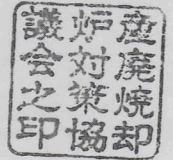 産廃焼却
炉対策協
議会之印